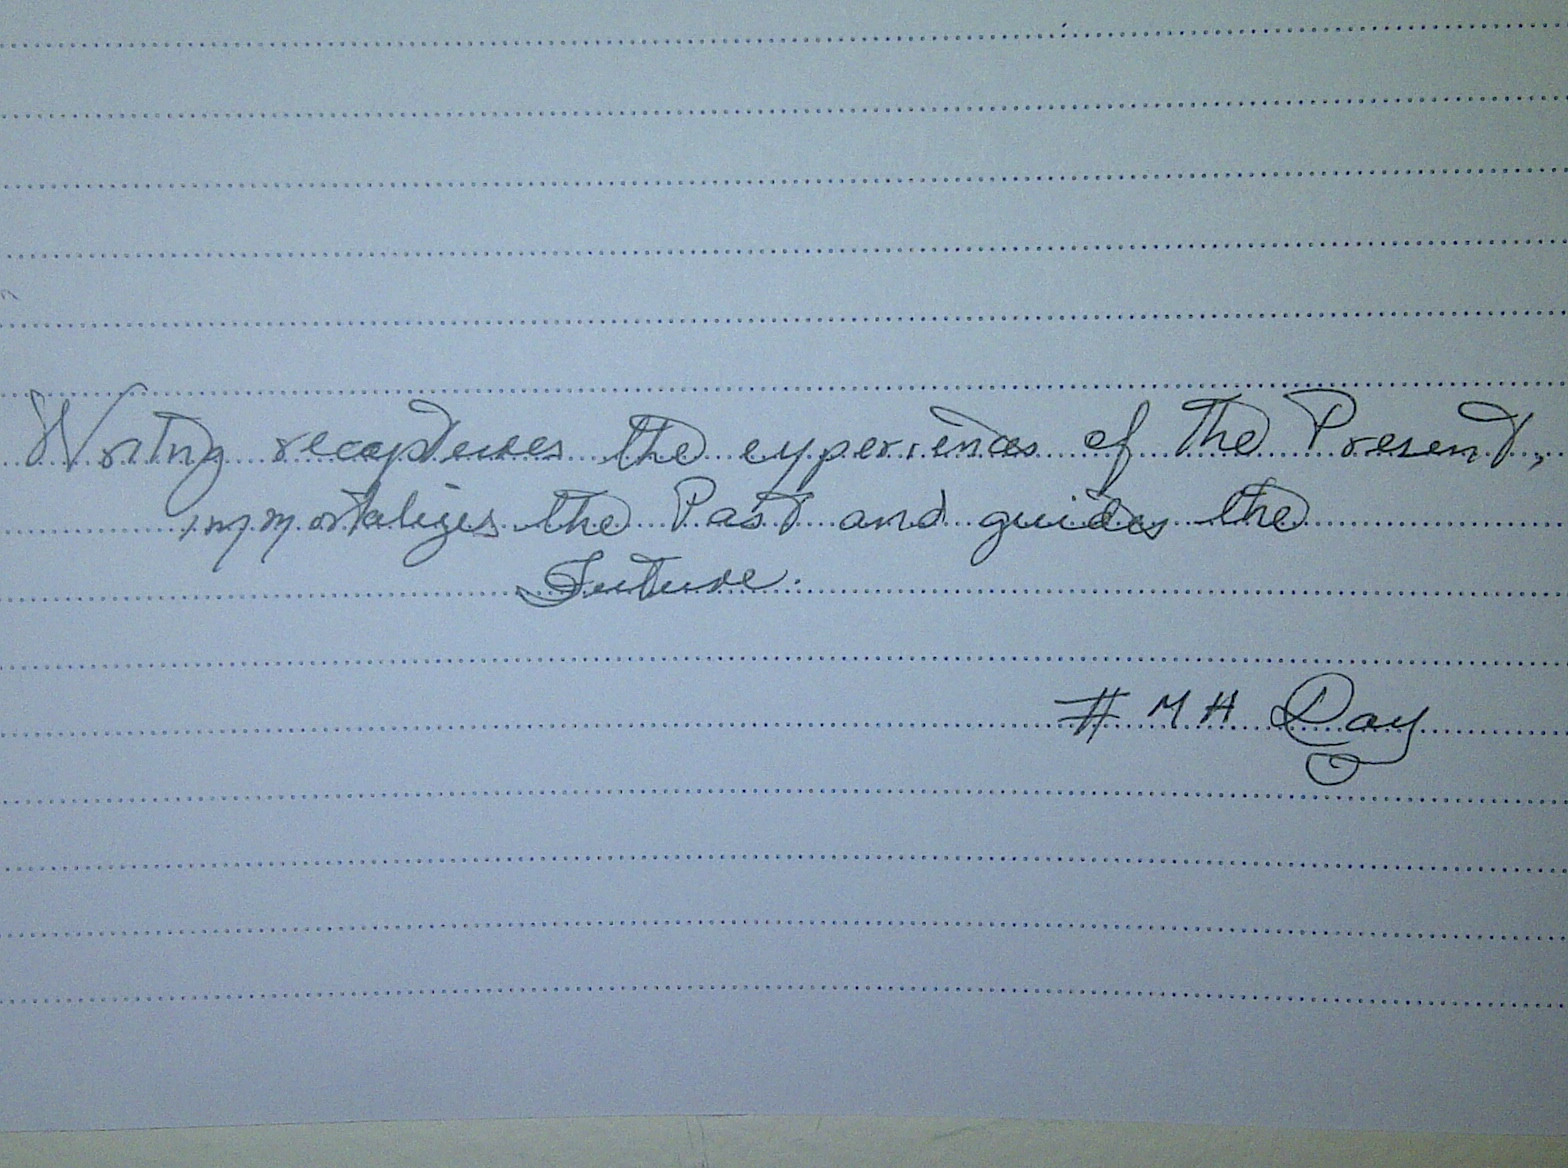 Writing recaptures the experiences of the Present,
immortalizes the Past and guides the
Future.
# M H Day